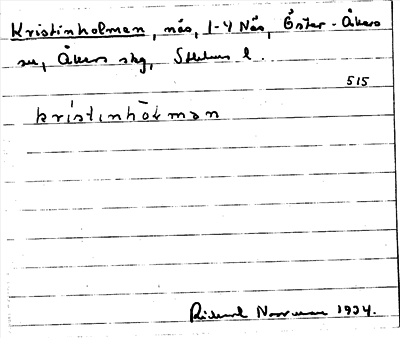 Kristinholmen, näs, 1-4 Näs, Öster-Åkers
sn, Åkers skg, Sthlms l.
515
kristinhòlmən
1934.